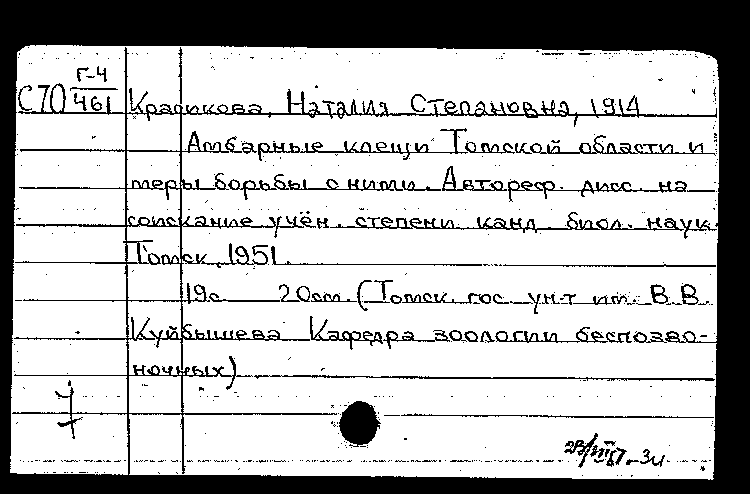 Г-4
С70 461 Красикова, Наталия Степановна, 1914
Амбарные клещи Томской области и
меры борьбы с ними. Автореф. дисс. на
соискание учён. степени канд биол. наук.
Томск, 1951.
19с. 20см. (Томск. гос. ун-т им. В.В.
Куйбышева Кафедра зоологии беспозво-
ночных)